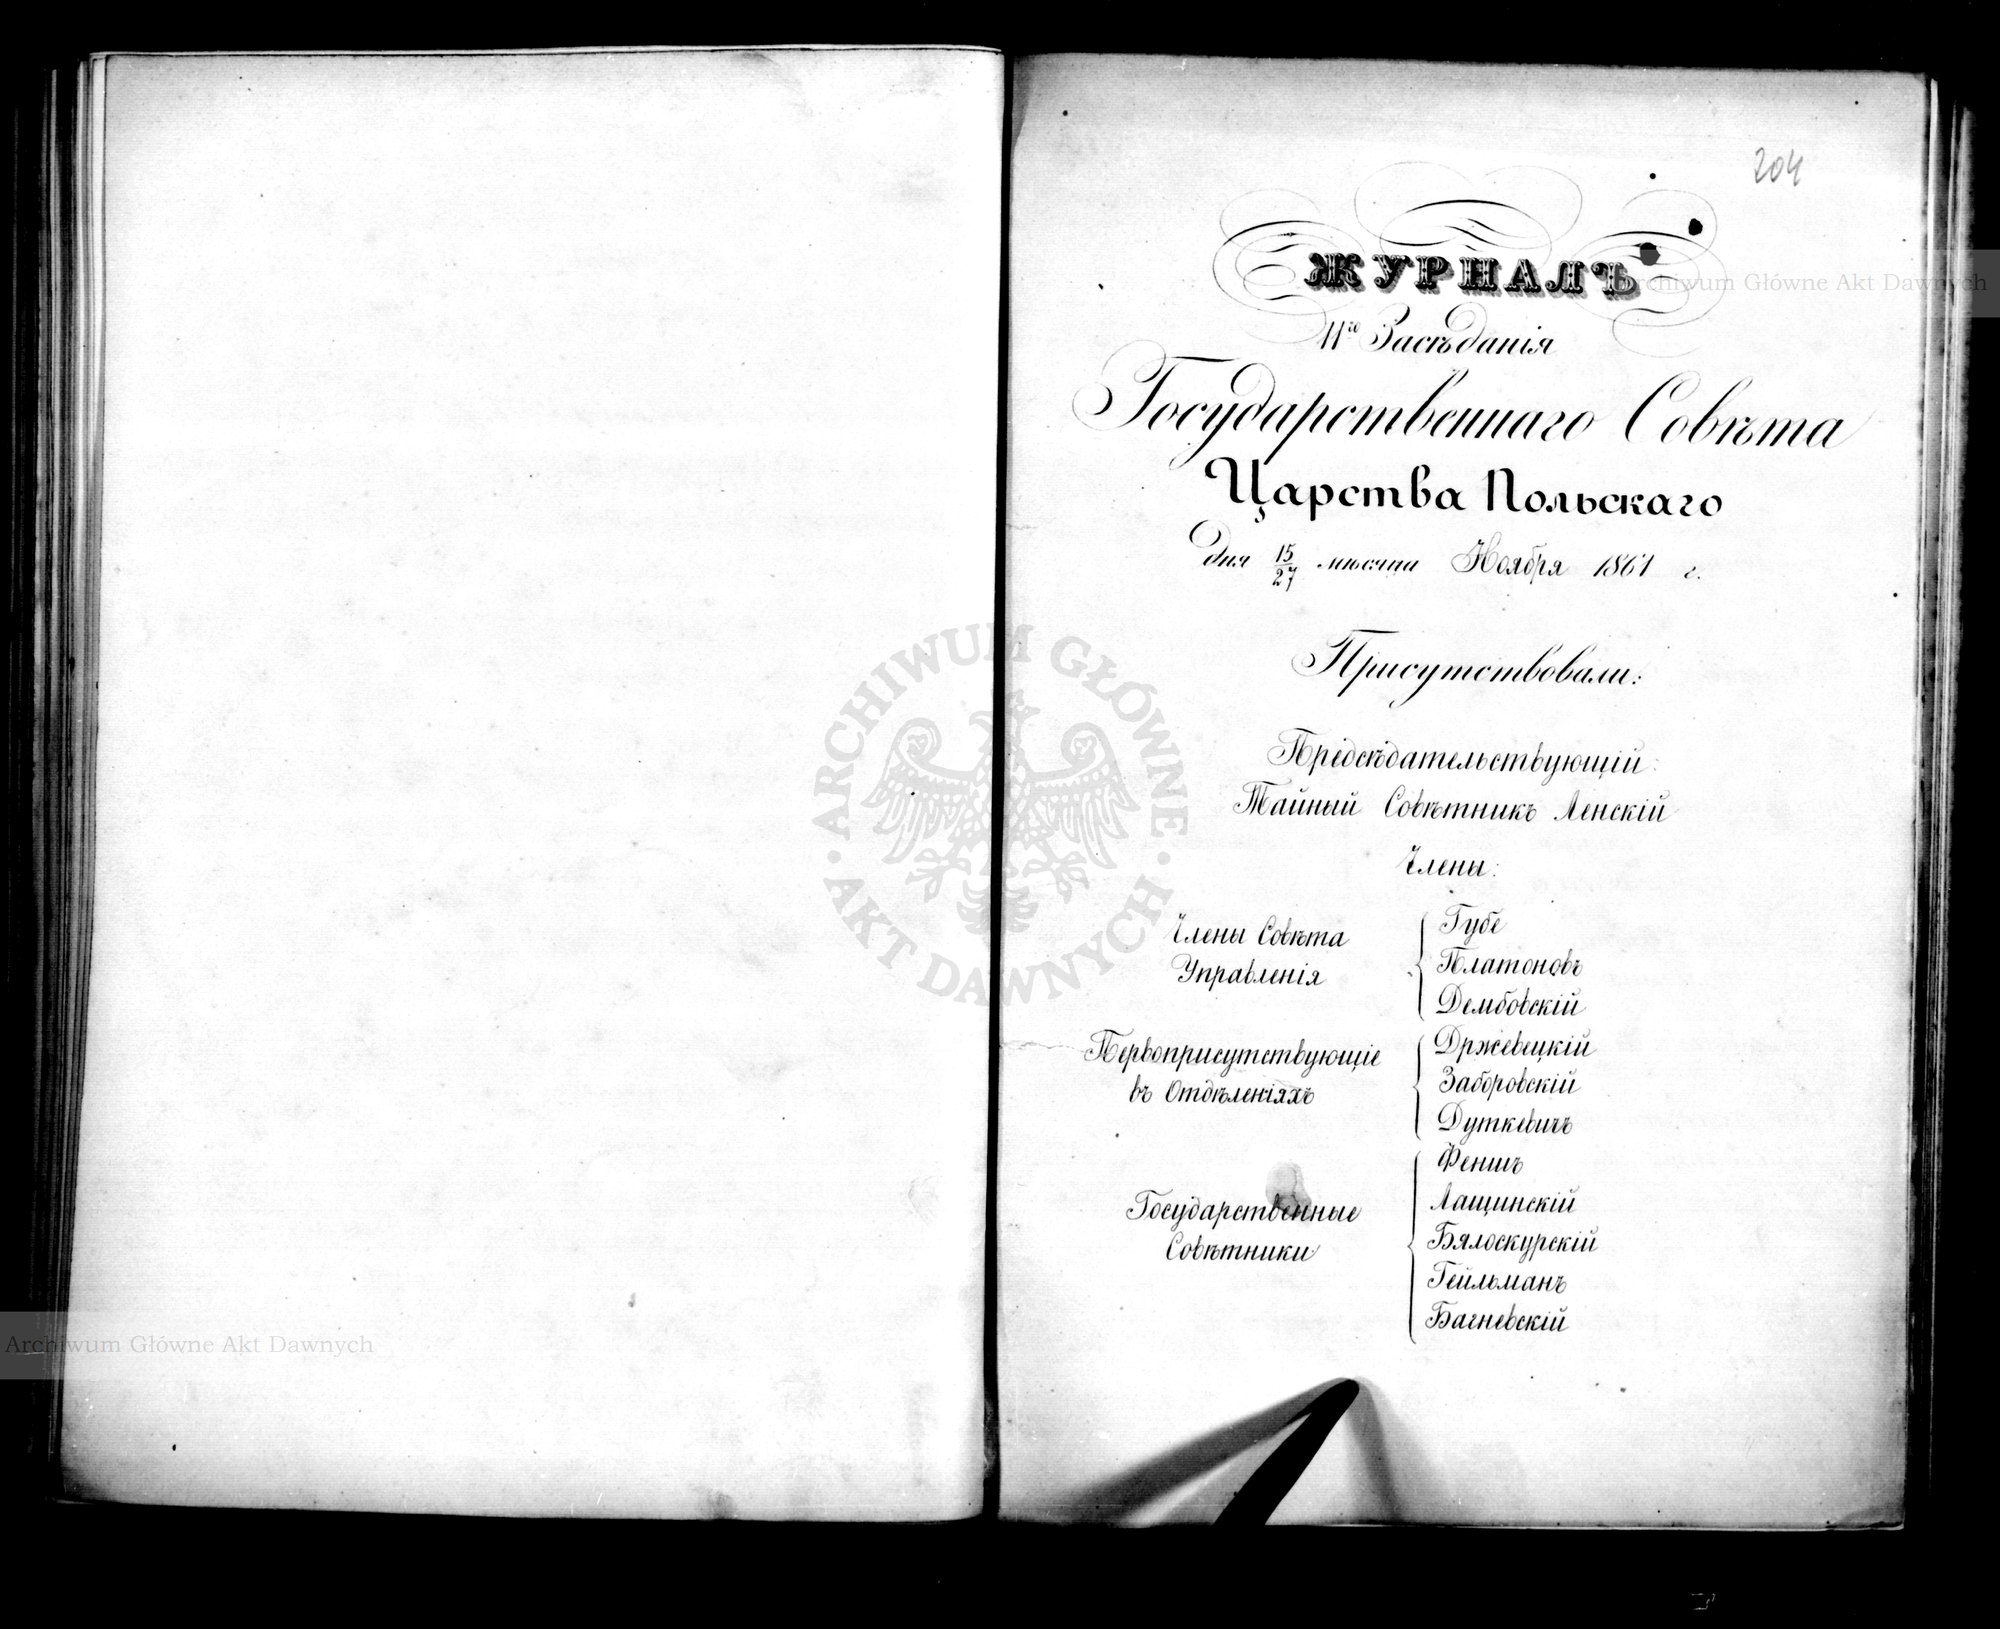 204
ЖУРНАЛЪ
11го Засѣданія
Государственнаго Совѣта
Царства Польскаго
дня 15/27 мѣсяца Ноября 1861 г.
Присутствовали:
Предсѣдательствующій:
Тайный Совѣтникъ Ленскій
Члены:
Члены Совѣта
Управленія
Губе
Платоновъ
Дембовскій
Первоприсутствующіе
въ Отдѣленіяхъ
Држевецкій
Заборовскій
Дуткевичъ
Государственные
Совѣтники
Феншъ
Лащинскій
Бялоскурскій
Гейльманъ
Багневскій
Archiwum Główne Akt Dawnych
ARCHIWUM GŁÓWNE
AKT DAWNYCH
Archiwum Główne Akt Dawnych